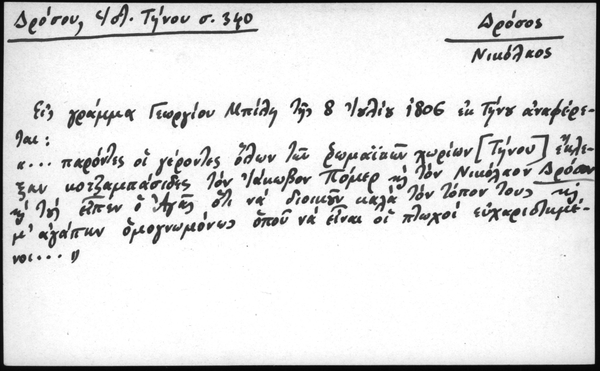 Δρόσου, Ἱστ. Τήνου σ. 340
Δρόσος
Νικόλαος
Εἰς γράμμα Γεωργίου Μπίλη τῆς 8 Ἰουλίου 1806 ἐκ Τήνου ἀναφέρε-
ται:
«... παρόντες οἱ γέροντες ὅλων τῶν ῥωμαϊκῶν χωρίων [Τήνου] ἔκλε-
ξαν κοτζαμπάσιδες τὸν Ἰάκωβον Πώμερ κὶ τὸν Νικόλαον Δρόσον
κὶ τοὺς εἶπεν ὁ Ἀγᾶς ὅτι νὰ διοικοῦν καλὰ τὸν τόπον τους κὶ
μ' ἀγάπην ὁμογνωμόνως ὁποῦ νὰ εἶναι οἱ πτωχοί εὐχαριστημέ-
νοι...»